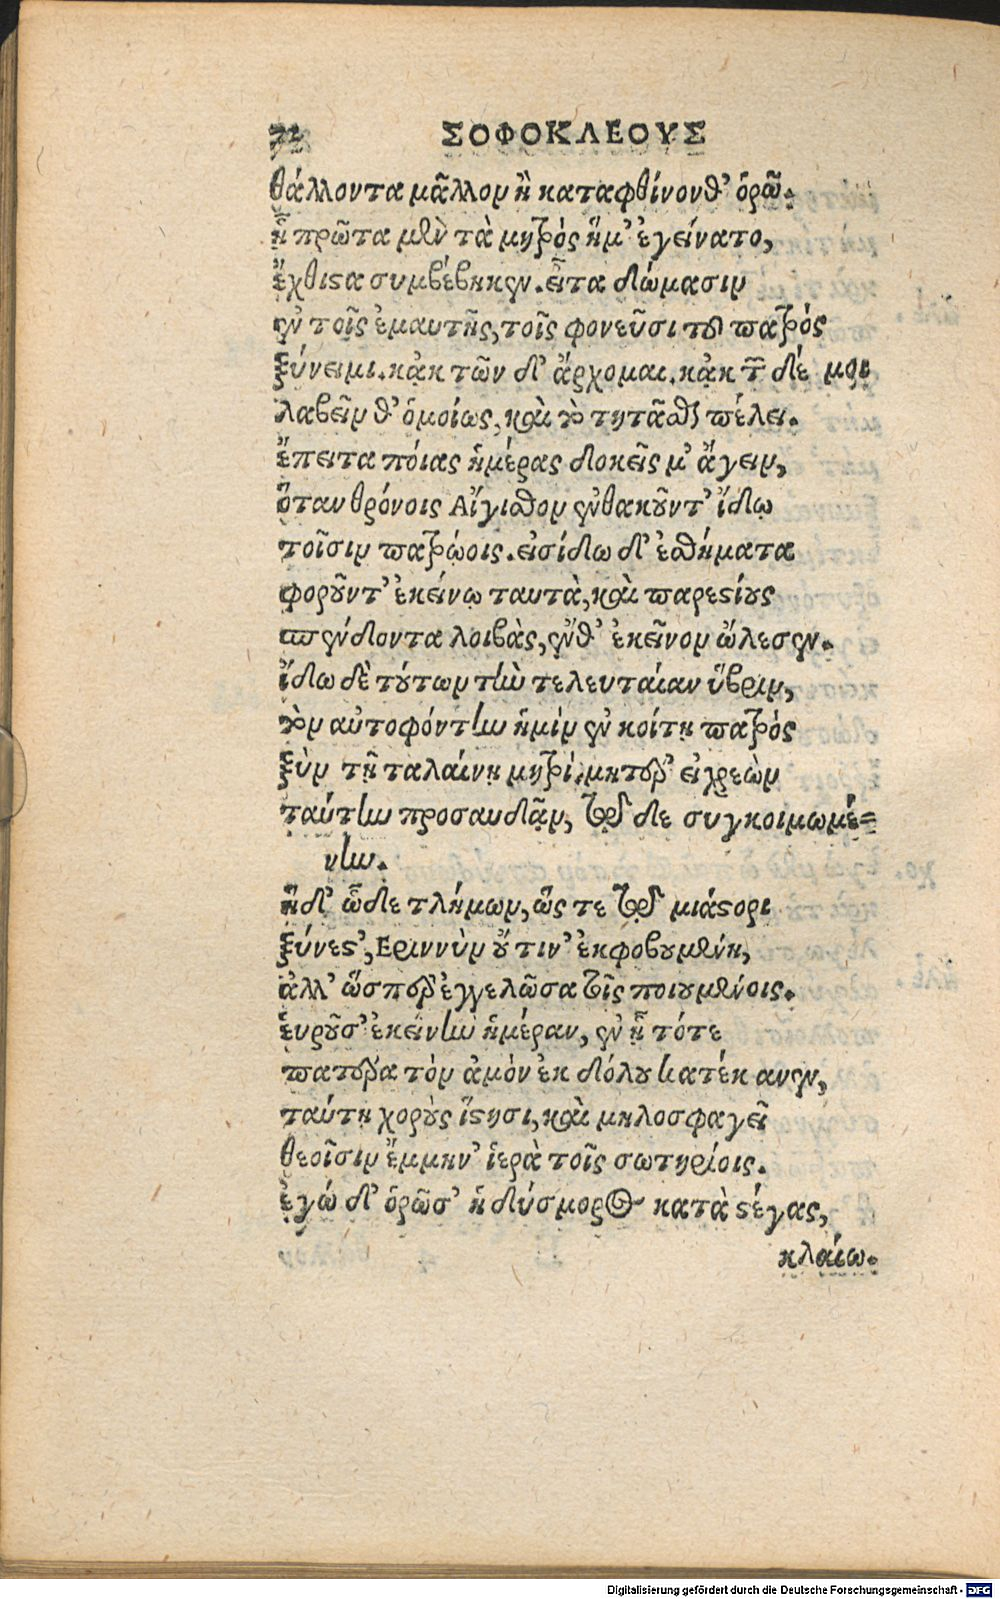 72 ΣΟΦΟΚΛΕΟΥΣ
θάλλοντα μᾶλλον ἢ καταφθίνονθ' ὁρῶ.
ᾗ πρῶτα μὲν τὰ μητρὸς ἥμ' ἐγείνατο,
ἔχθιστα συμβέβηκεν. εἶτα δώμασιν
ἐν τοῖς ἐμαυτῆς, τοῖς φονεῦσι τοῦ πατρὸς
ξύνειμι. κᾀκ τῶν δ' ἄρχομαι. κᾀκ τῶν δέ μοι
λαβεῖν θ' ὁμοίως, καὶ τὸ τητᾶσθαι πέλει.
ἔπειτα πόιας ἡμέρας δοκεῖς μ' ἄγειν,
ὅταν θρόνοις Αἴγισθον ἐνθακοῦντ' ἴδω
τοῖσιν πατρῴοις. εἰσίδω δ' ἐσθήματα
φοροῦντ' ἐκείνῳ ταυτὰ, καὶ παρεστίους
σπένδοντα λοιβὰς, ἔνθ' ἐκεῖνον ὤλεσεν.
ἴδω δὲ τούτων τὴν τελευταίαν ὕβριν,
τὸν αὐτοφόντην ἡμὶν ἐν κοίτῃ πατρὸς
ξὺν τῇ ταλαίνῃ μητρί. μητέρ' εἰ χρεὼν
ταύτην προσαυδᾶν, τῷδε συγκοιμωμέ=
νην.
ἡ δ' ὧδε τλήμων, ὥς τε τῷ μιάστορι
ξύνεστ', Εριννὺν οὔ τιν' ἐκφοβουμένη,
ἀλλ' ὥσπερ ἐγγελῶσα τοῖς ποιουμένοις.
ἑυροῦσ' ἐκείνην ἡμέραν, ἐν ᾗ τότε
πατέρα τὸν ἀμὸν ἐκ δόλου κατέκ ανεν,
ταύτῃ χοροὺς ἵστησι, καὶ μηλοσφαγεῖ
θεοῖσιν ἔμμην' ἱερὰ τοῖς σωτηρίοις.
ἐγώ δ' ὁρῶσ' ἡ δύσμορος κατὰ στέγας,
κλαίω.
Digitalisierung gefördert durch die Deutsche Forschungsgemeinschaft - DFG